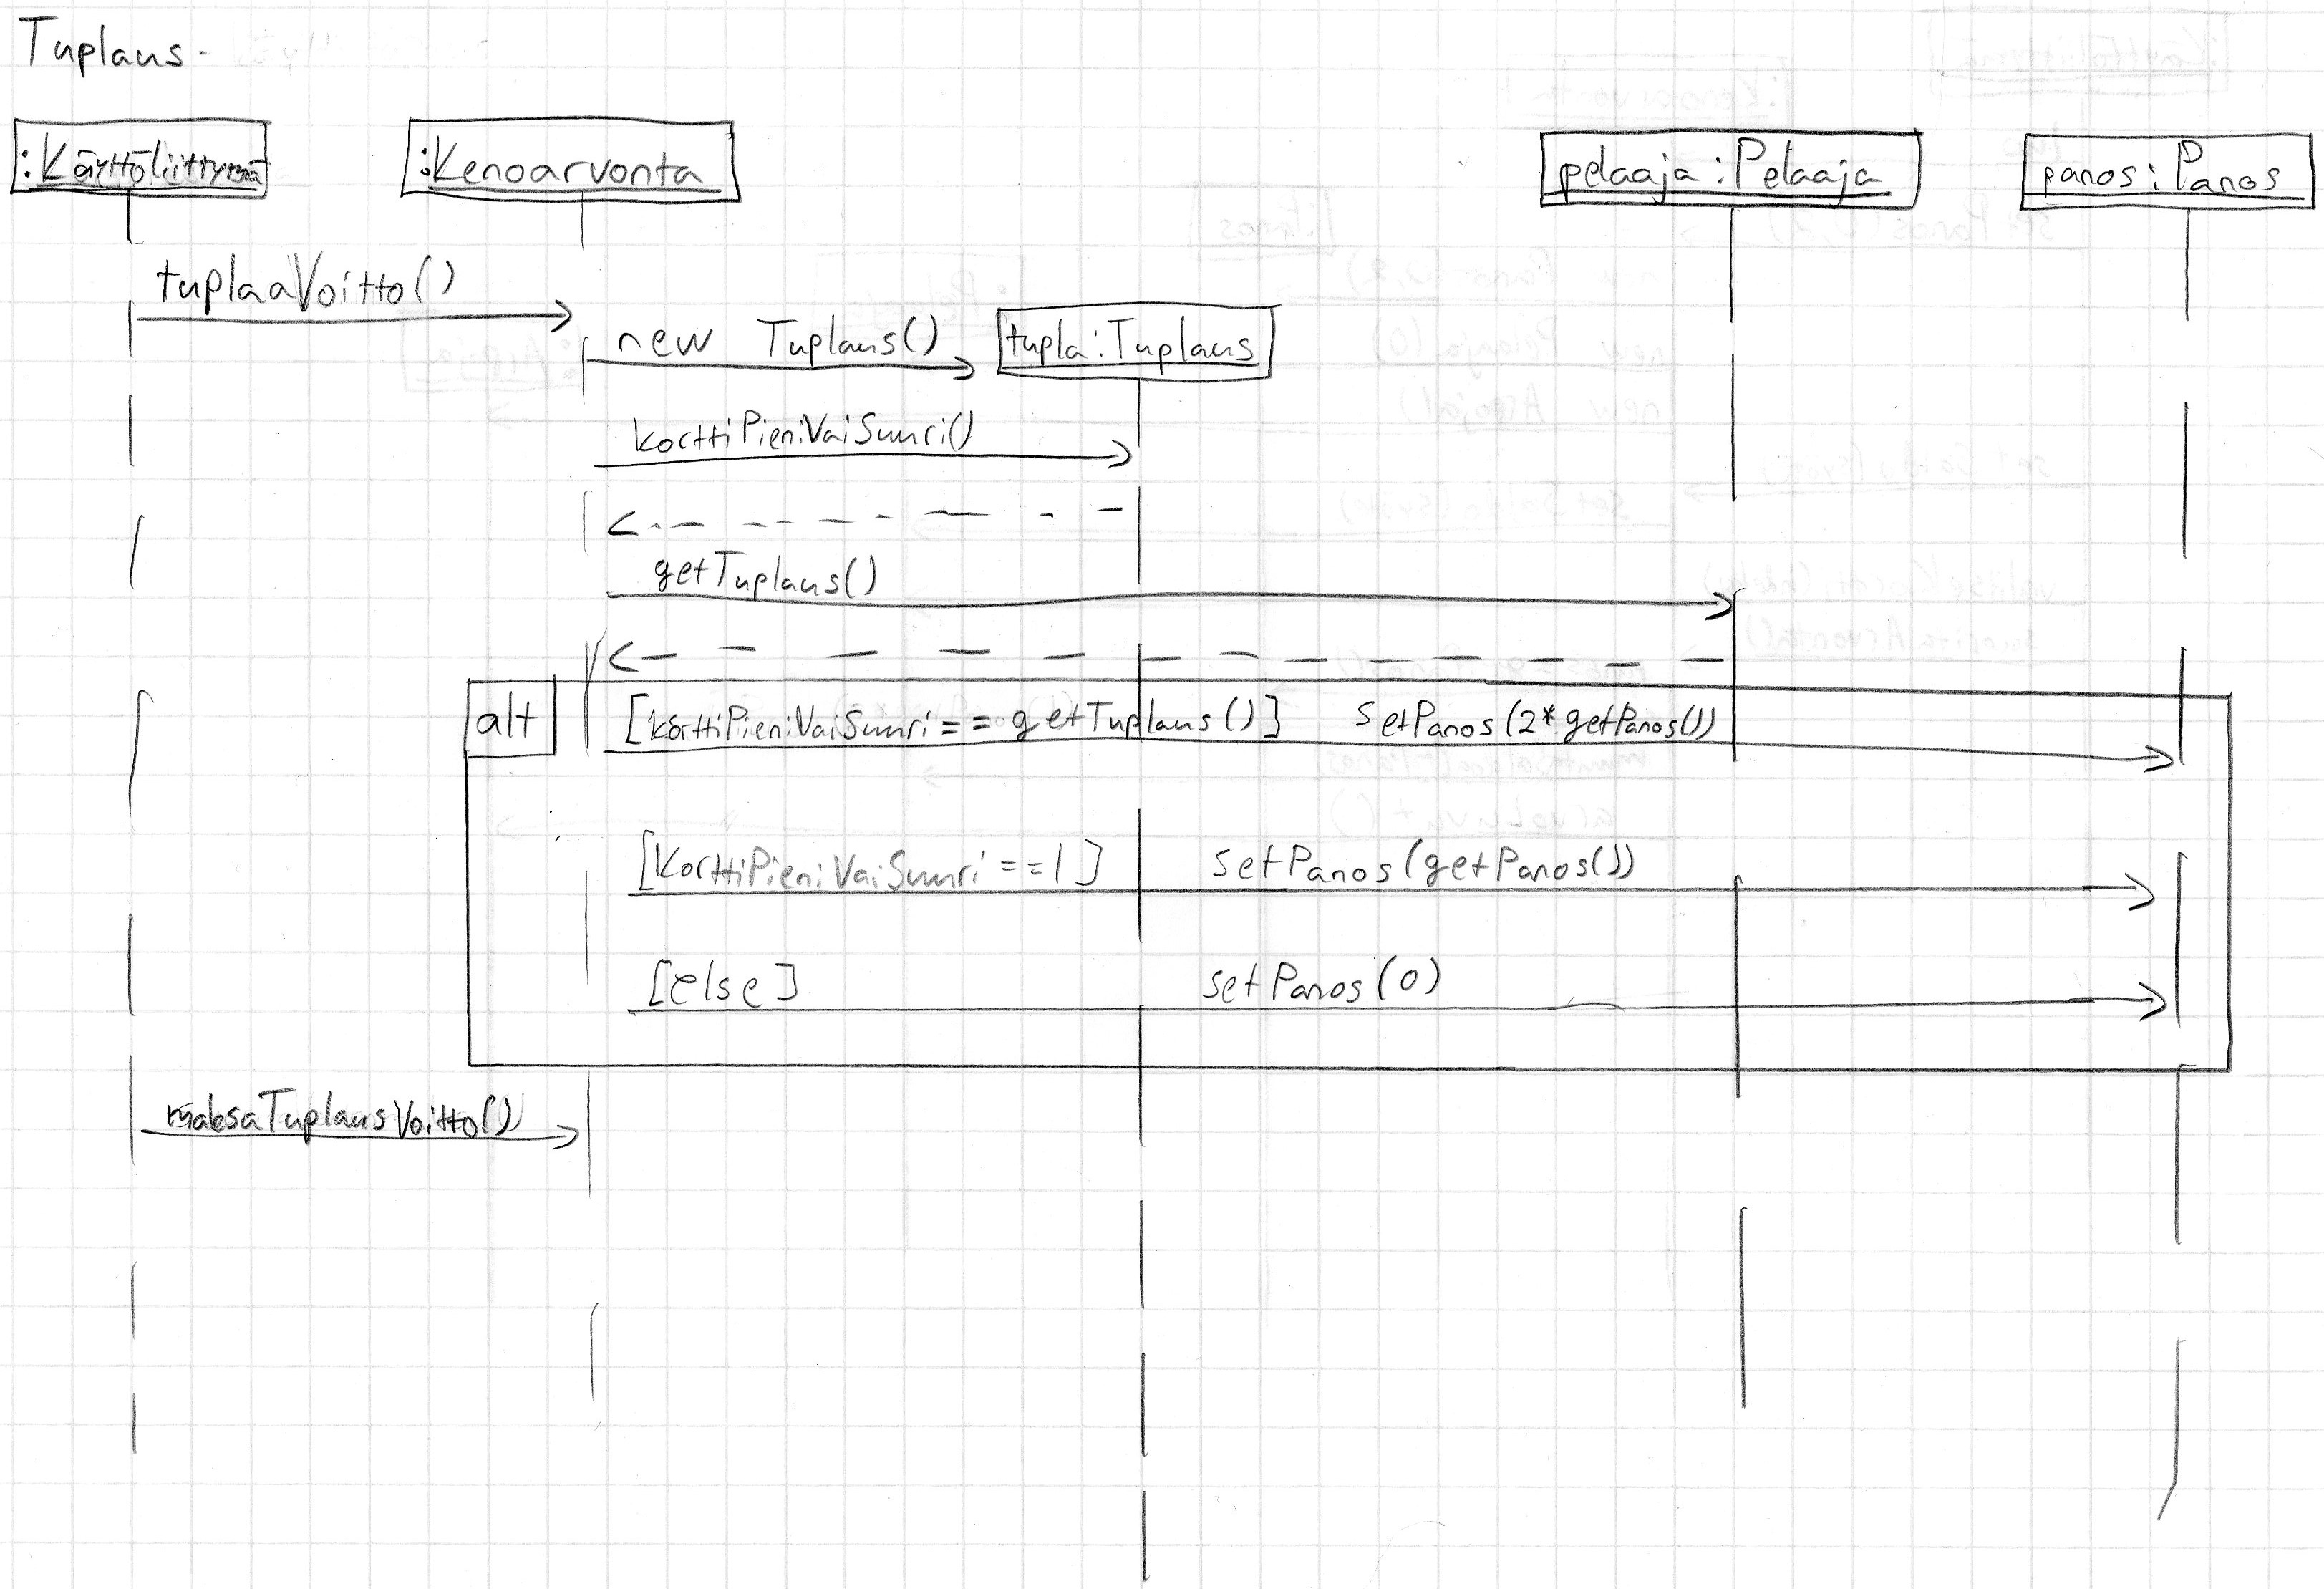 Tuplaus
:Käyttöliittymä :Kenoarvonta pelaaja:Pelaaja panos:Panos
tuplaaVoitto()
new Tuplaus() tupla:Tuplaus
korttiPieniVaiSuuri()
getTuplaus()
alt [korttiPieniVaiSuuri == getTuplaus()] setPanos(2*getPanos())
[KorttiPieniVaiSuuri ==1] setPanos(getPanos())
[else] setPanos(0)
maksaTuplausVoitto()